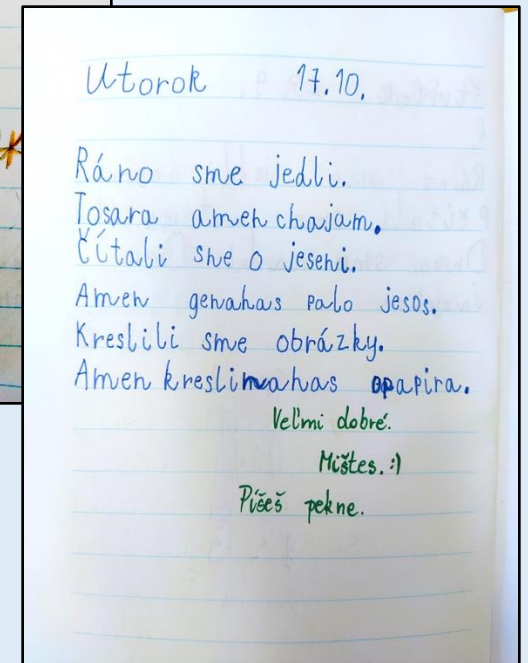 Utorok 17.10.
Ráno sme jedli.
Tosara amen chajam.
Čítali sme o jeseni.
Amen genahas palo jesos.
Kreslili sme obrázky.
Amen kreslinahas opapira.
Veľmi dobré.
Mištes. :)
Píšeš pekne.